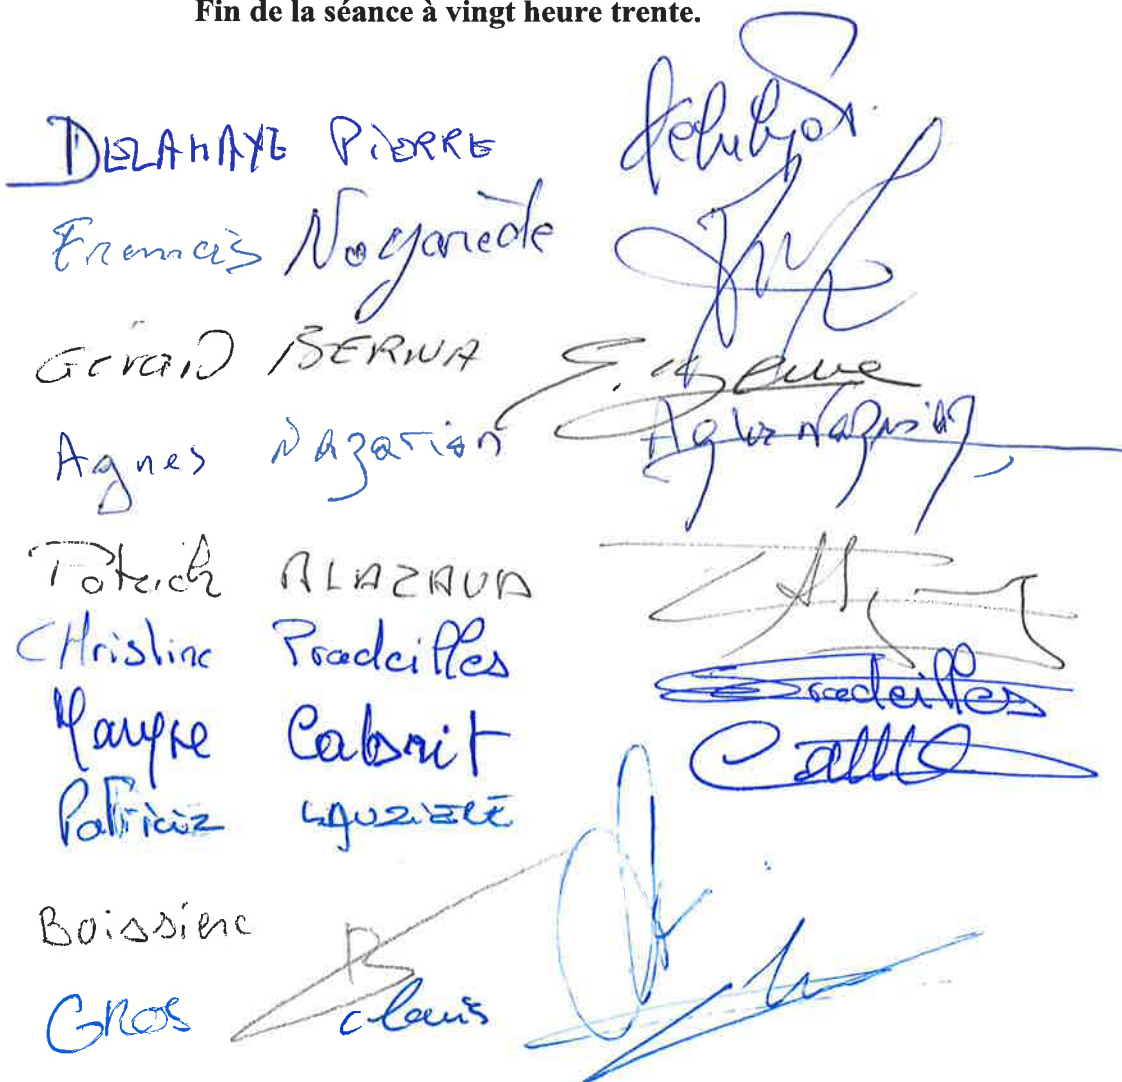 Fin de la séance à vingt heure trente.
DELAHAYE PIERRE
Francis Nogarède
Gérard BERNA G. Berna
Agnes Nazarian Agnes Nazarian
Patrick ALAZAUD
CHristine Pradeilles Pradeilles
Cabrit
Patricia LAUZIERE
Boissiere
GROS Clauis